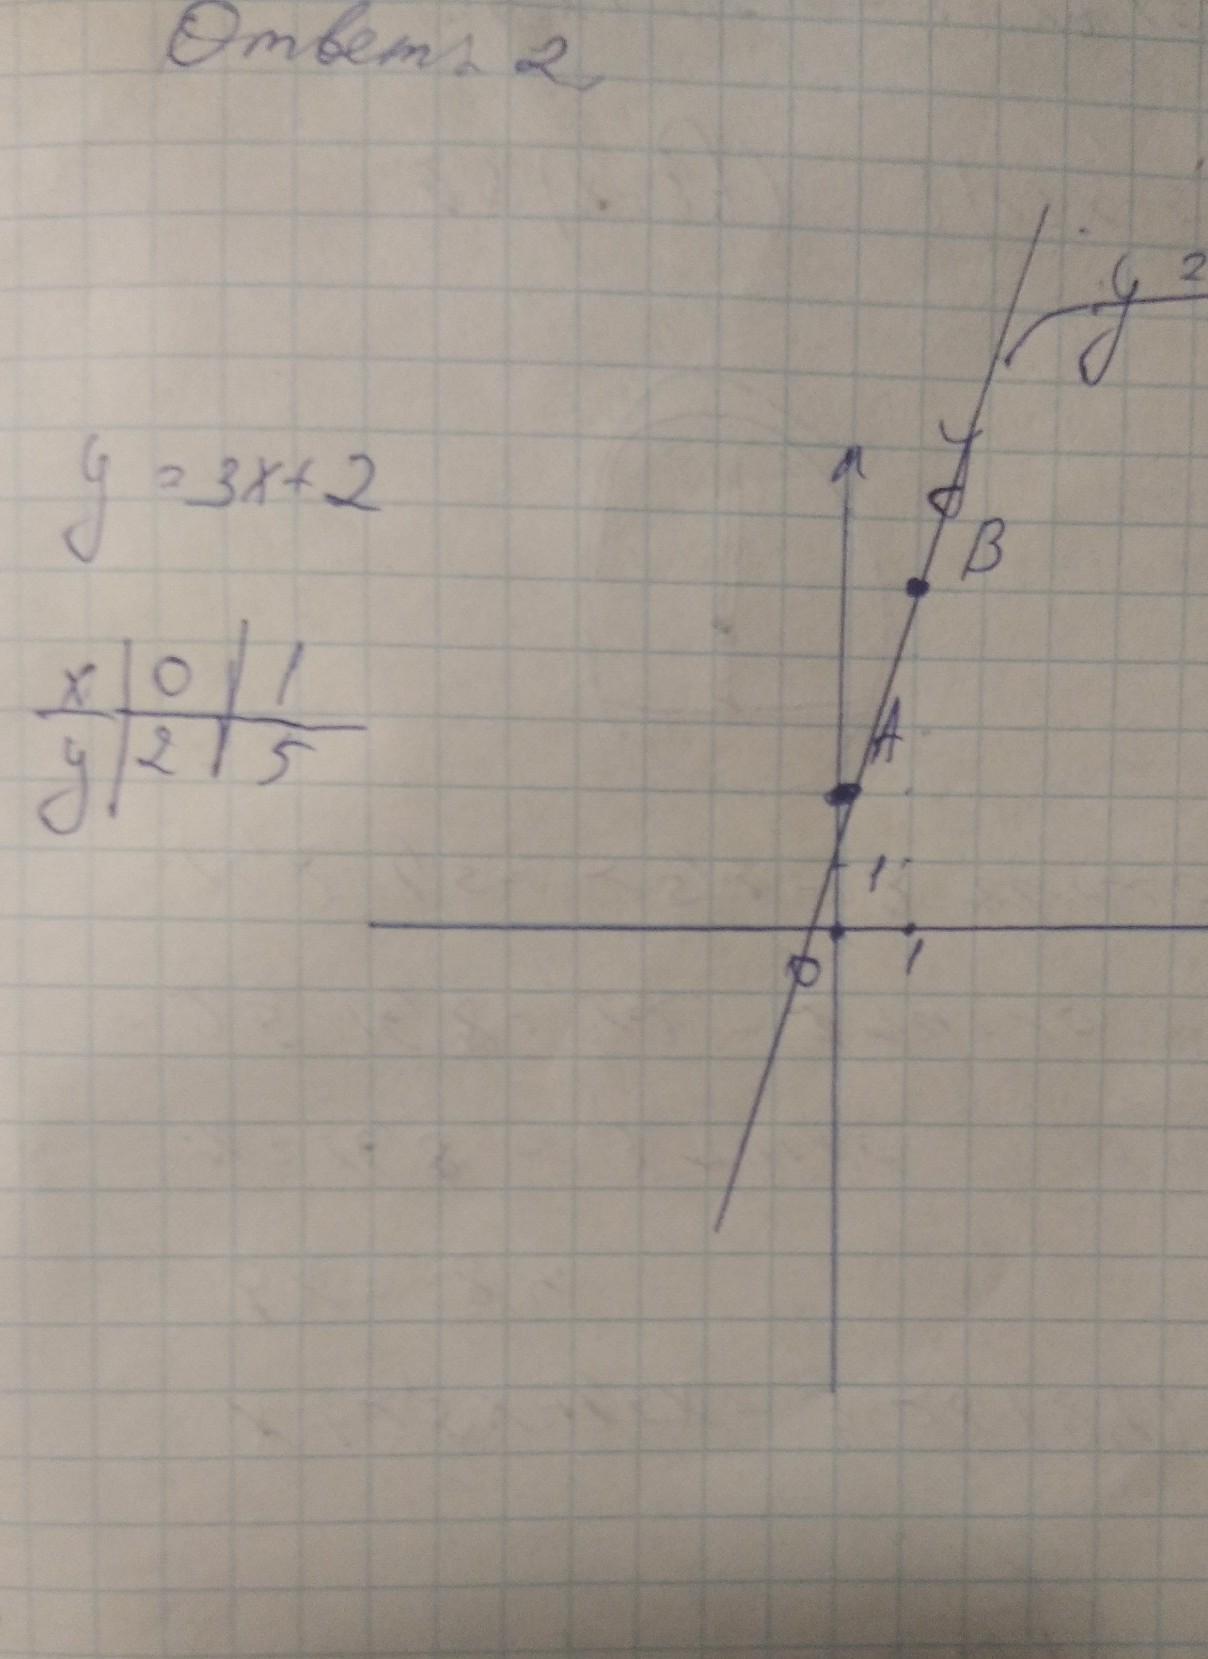 Ответ: 2
y =
y
y = 3x + 2
B
x | 0 | 1
y | 2 | 5
A
1
0 1